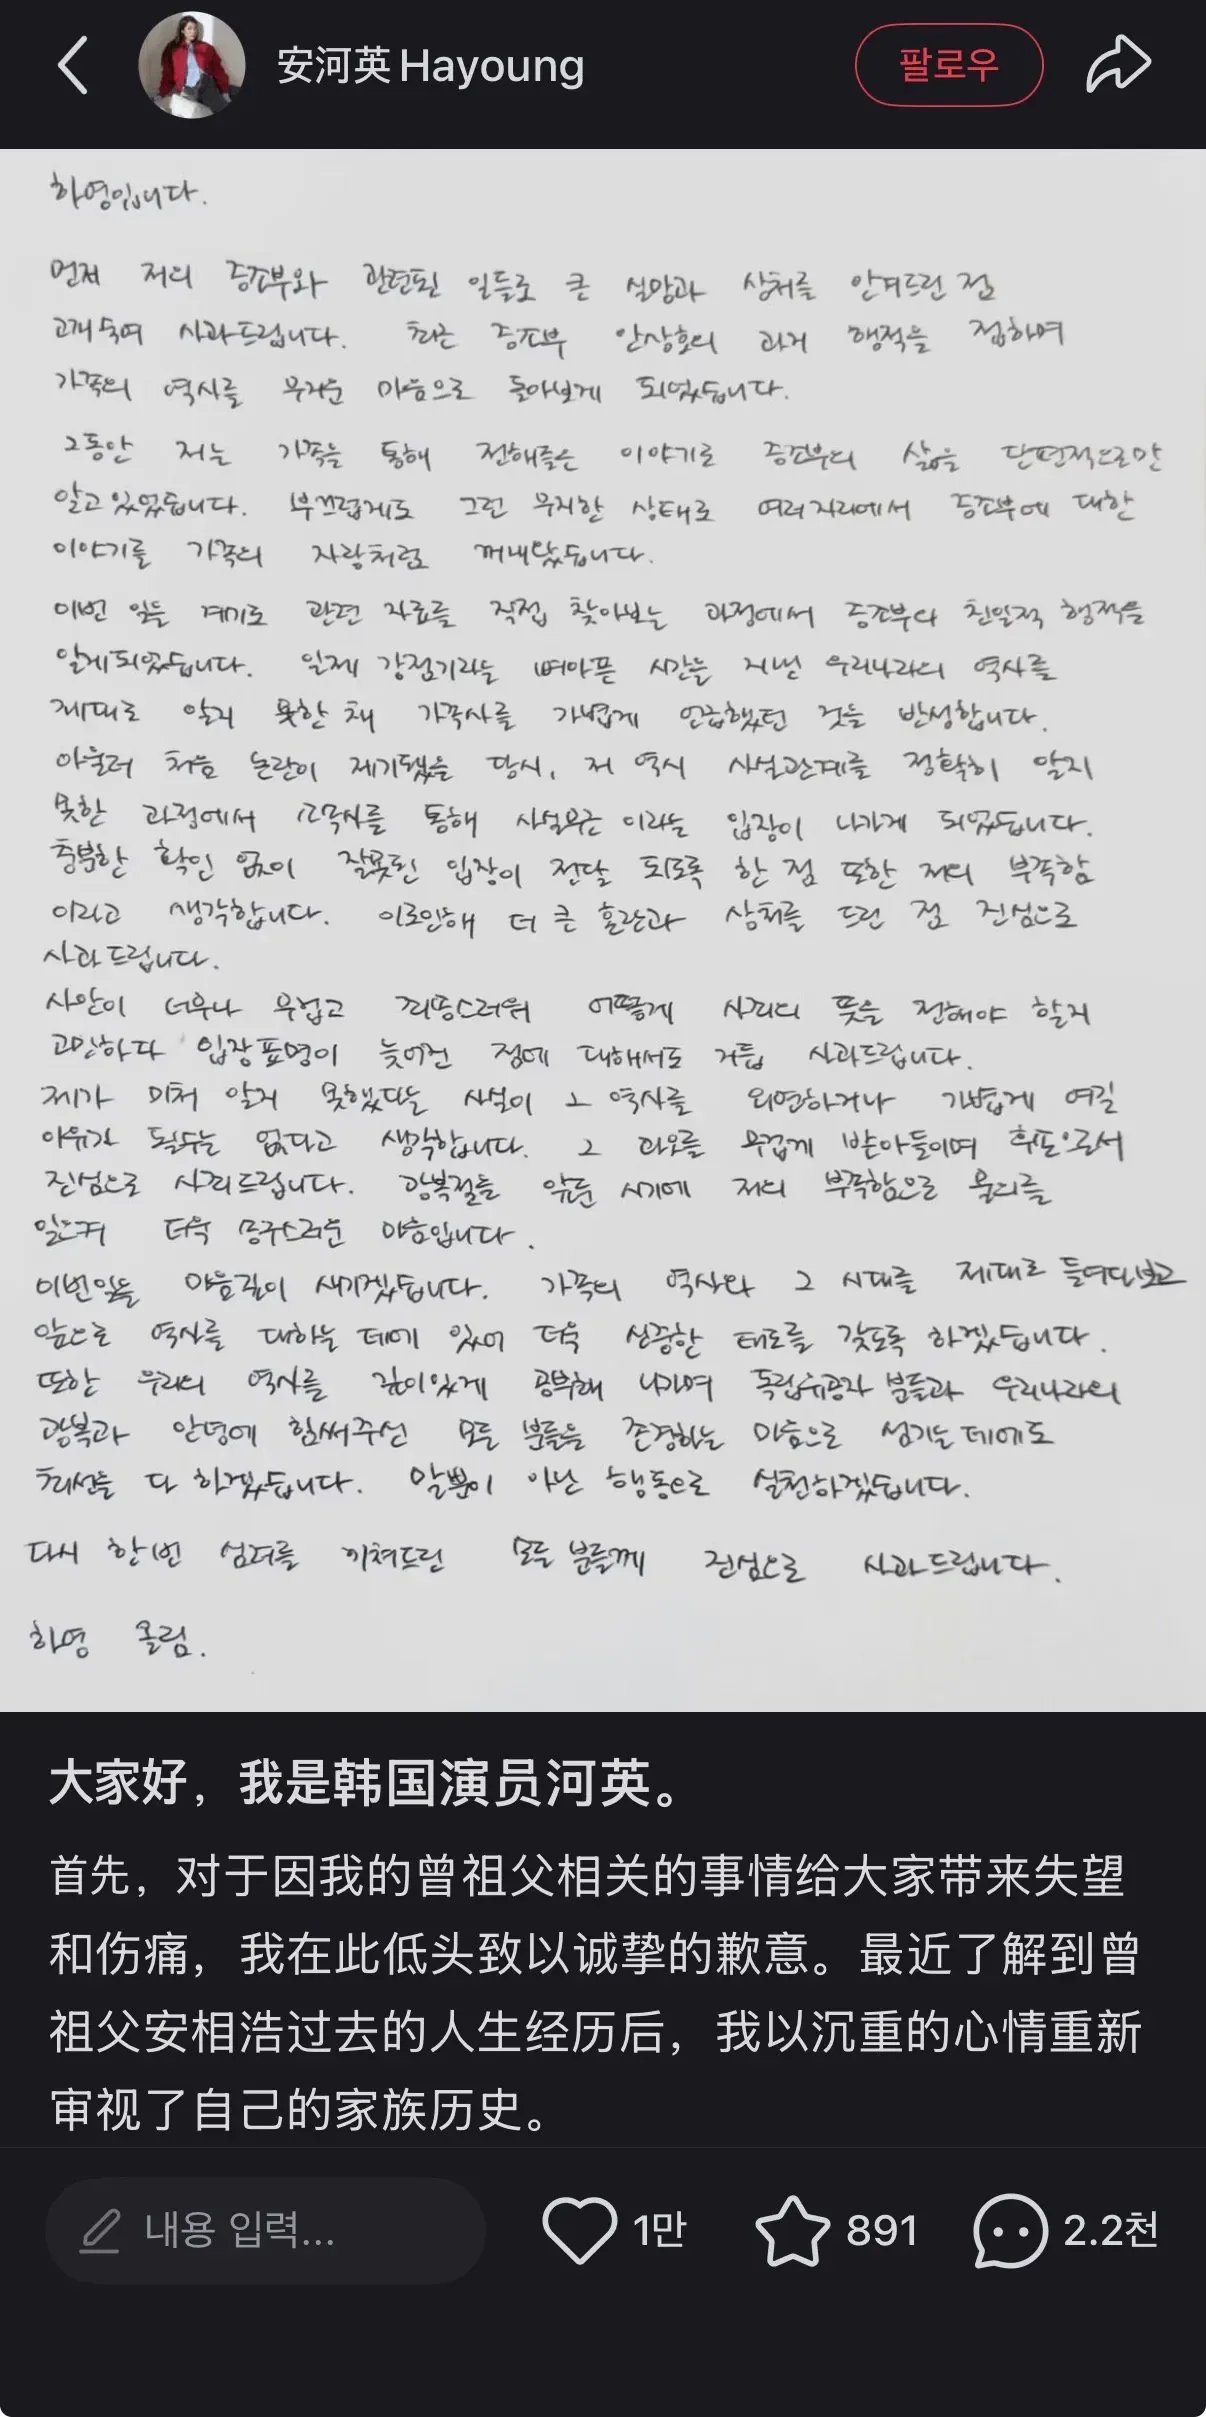 安河英Hayoung
팔로우
하영입니다.
먼저 저의 증조부와 관련된 일들로 큰 실망과 상처를 안겨드린 점
고개숙여 사과드립니다. 최근 증조부 안상호의 과거 행적을 접하며
가족의 역사를 무거운 마음으로 돌아보게 되었습니다.
그동안 저는 가족을 통해 전해들은 이야기로 증조부의 삶을 단편적으로만
알고있었습니다. 부끄럽게도 그런 무지한 상태로 여러자리에서 증조부에 대한
이야기를 가족의 자랑처럼 꺼내왔습니다.
이번 일을 계기로 관련 자료를 직접 찾아보는 과정에서 증조부의 친일적 행적을
알게되었습니다. 일제 강점기라는 뼈아픈 시간을 지낸 우리나라의 역사를
제대로 알지 못한 채 가족사를 가볍게 언급했던 것을 반성합니다.
아울러 처음 논란이 제기됐을 당시, 저 역시 사실관계를 정확히 알지
못한 과정에서 소속사를 통해 사실무근 이라는 입장이 나가게 되었습니다.
충분한 확인 없이 잘못된 입장이 전달 되도록 한 점 또한 저의 부족함
이라고 생각합니다. 이로인해 더 큰 혼란과 상처를 드린 점 진심으로
사과드립니다.
사안이 너무나 무겁고 죄송스러워 어떻게 사죄의 뜻을 전해야 할지
고민하다 입장표명이 늦어진 점에 대해서도 거듭 사과드립니다.
제가 미처 알지 못했다는 사실이 그 역사를 외면하거나 가볍게 여길
이유가 될수는 없다고 생각합니다. 그 과오를 무겁게 받아들이며 후손으로서
진심으로 사죄드립니다. 광복절을 앞둔 시기에 저의 부족함으로 물의를
일으켜 더욱 송구스러운 마음입니다.
이번일을 마음깊이 새기겠습니다. 가족의 역사와 그 시대를 제대로 들여다보고
앞으로 역사를 대하는 데에 있어 더욱 신중한 태도를 갖도록 하겠습니다.
또한 우리의 역사를 깊이있게 공부해 나가며 독립유공자 분들과 우리나라의
광복과 안녕에 힘써주신 모든 분들을 존경하는 마음으로 섬기는데에도
최선을 다 하겠습니다. 말뿐이 아닌 행동으로 실천하겠습니다.
다시 한번 심려를 끼쳐드린 모든 분들께 진심으로 사과드립니다.
하영 올림.
大家好，我是韩国演员河英。
首先，对于因我的曾祖父相关的事情给大家带来失望
和伤痛，我在此低头致以诚挚的歉意。最近了解到曾
祖父安相浩过去的人生经历后，我以沉重的心情重新
审视了自己的家族历史。
내용 입력...
1만
891
2.2천